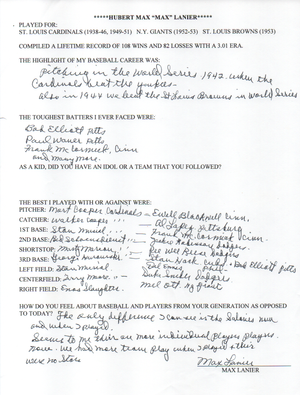 *****HUBERT MAX "MAX" LANIER*****
PLAYED FOR:
ST. LOUIS CARDINALS (1938-46, 1949-51) N.Y. GIANTS (1952-53) ST. LOUIS BROWNS (1953)
COMPILED A LIFETIME RECORD OF 108 WINS AND 82 LOSSES WITH A 3.01 ERA.
THE HIGHLIGHT OF MY BASEBALL CAREER WAS:
pitching in the World Series 1942 when the
Cardinals beat the yankees-
also in 1944 we beat the St Louis Browns in World Series
THE TOUGHEST BATTERS I EVER FACED WERE:
Bob Elliott Pitts
Paul Waner Pitts
Frank McCormick Cinn
and many more.
AS A KID, DID YOU HAVE AN IDOL OR A TEAM THAT YOU FOLLOWED?
THE BEST I PLAYED WITH OR AGAINST WERE:
PITCHER: Mort Cooper Cardinals - Ewell Blackwell Cinn.
CATCHER: Walker Cooper - Al Lopez Pittsburg
1ST BASE: Stan Musial - Frank McCormick Cinn.
2ND BASE: Red Schoendienst - Jackie Robinson Dodgers
SHORTSTOP: Marty Marion - Pee Wee Reese Dodgers
3RD BASE: George Kurowski - Stan Hack Cubs + Bob Elliott Pitts
LEFT FIELD: Stan Musial Del Ennis Phil.
CENTERFIELD: Terry Moore - Duke Snider Dodgers
RIGHT FIELD: Enos Slaughter. Mel Ott Ny Giants
HOW DO YOU FEEL ABOUT BASEBALL AND PLAYERS FROM YOUR GENERATION AS OPPOSED
TO TODAY? The only difference I can see is the Salaries now
and when I played.
Seems to me their are more individual players players
now. We had more team play when I played. There
were no
Max Lanier
MAX LANIER